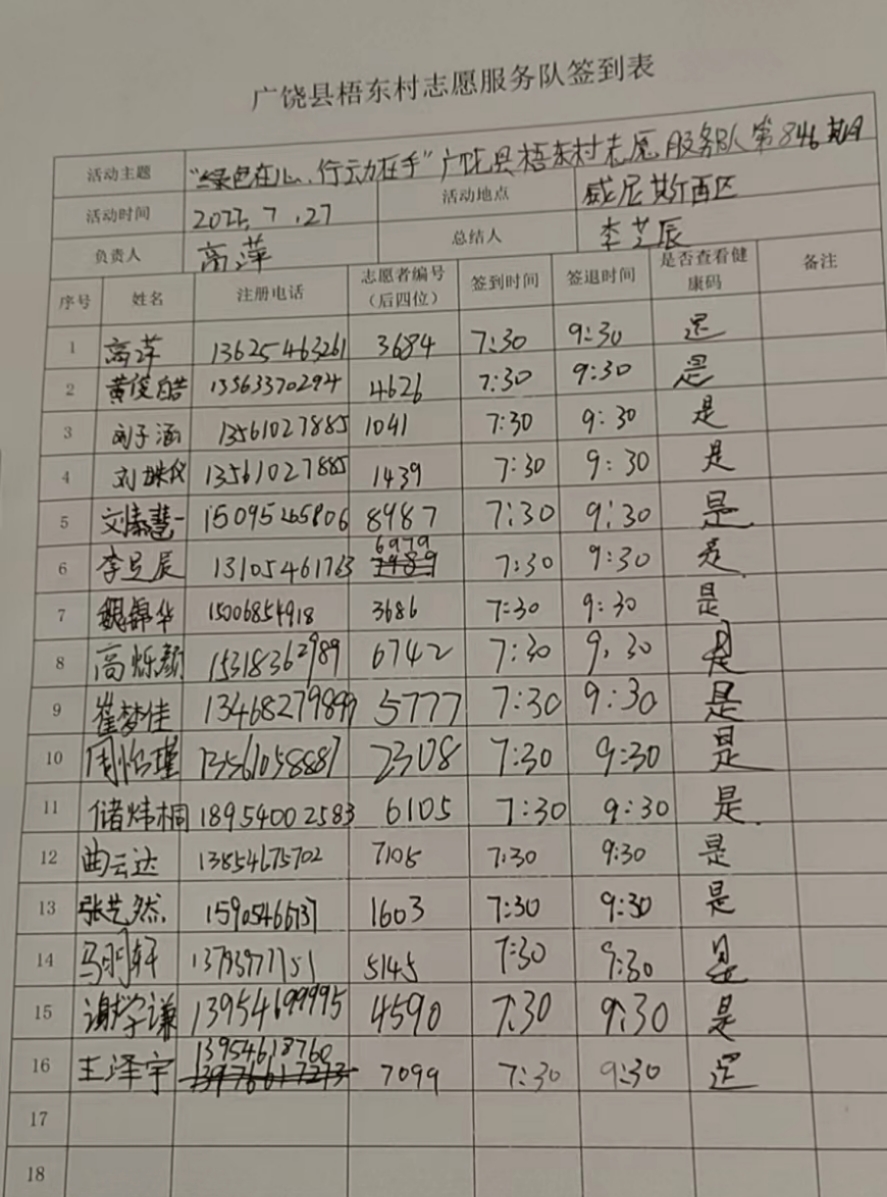 广饶县梧东村志愿服务队签到表
活动主题 "绿色在心、行动在手"广饶县梧东村志愿服务队第846期
活动时间 2022.7.27 活动地点 威尼斯西区
负责人 高萍 总结人 李芝辰
序号 姓名 注册电话 志愿者编号（后四位） 签到时间 签退时间 是否查看健康码 备注
1 高萍 13625463261 3684 7:30 9:30 是
2 黄俊皓 13563370294 4626 7:30 9:30 是
3 刘子涵 13561027885 1041 7:30 9:30 是
4 刘姝仪 13561027885 1439 7:30 9:30 是
5 刘慧一 15095265806 8987 7:30 9:30 是
6 李昱辰 13105461763 6979 7:30 9:30 是
7 魏锦华 15006854918 3686 7:30 9:30 是
8 高烁颜 15318362989 6742 7:30 9:30 是
9 崔梦佳 13468279899 5777 7:30 9:30 是
10 周怡瑾 13561058887 2308 7:30 9:30 是
11 储炜桐 18954002583 6105 7:30 9:30 是
12 曲云达 13854675702 7105 7:30 9:30 是
13 张艺然 15905466737 1603 7:30 9:30 是
14 马明轩 13793977751 5145 7:30 9:30 是
15 谢学谦 13954699995 4590 7:30 9:30 是
16 王泽宇 13954618760 7099 7:30 9:30 是
17
18